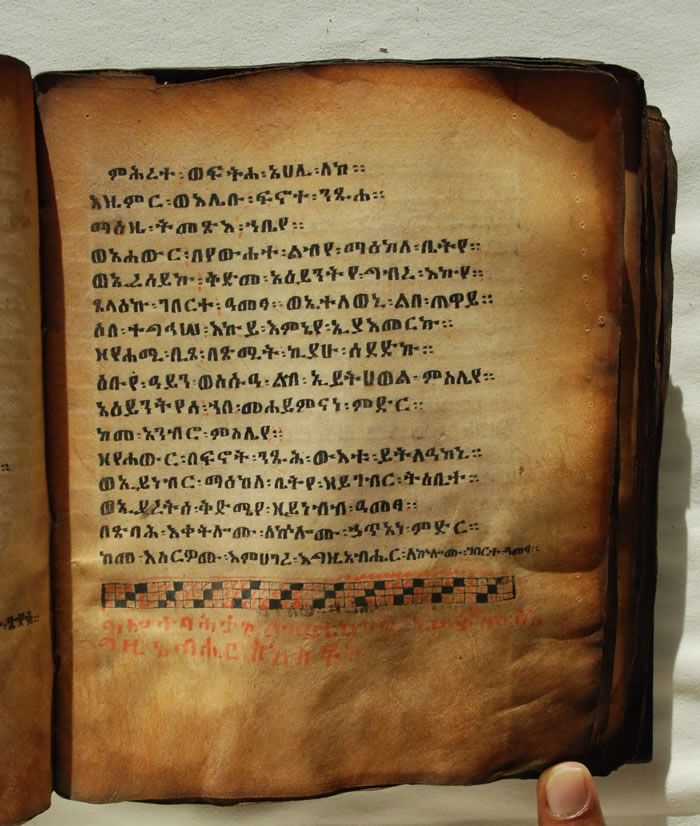 ምሕረተ፡ወፍትሐ፡አኀሊ፡ለከ፡፡
እዜምር፡ወእሌቡ፡ፍኖተ፡ንጹሐ፡፡
ማዕዜ፡ትመጽእ፡ኀቤየ፡፡
ወአሐውር፡በየውሐተ፡ልብየ፡ማዕከለ፡ቤትየ፡፡
ወኢረሰይኩ፡ቅድመ፡አዕይንትየ፡ግብረ፡እኩየ፡፡
ጸላዕኩ፡ገበርተ፡ዓመፃ፡ወኢተለወኒ፡ልብ፡ጠዋይ፡፡
ሶበ፡ተግኅሠ፡እኩይ፡እምኔየ፡ኢያእመርኩ፡፡
ዘየሐሚ፡ቢጾ፡በጽሚት፡ኪያሁ፡ሰደድኩ፡፡
ዕቡየ፡ዓይን፡ወስሱዓ፡ልብ፡ኢይትሀወል፡ምስሌየ፡፡
አዕይንትየሰ፡ኀበ፡መሐይምናነ፡ምድር፡፡
ከመ፡አንብሮ፡ምስሌየ፡፡
ዘየሐውር፡በፍኖት፡ንጹሕ፡ውእቱ፡ይትለዓከኒ፡፡
ወኢይነብር፡ማዕከለ፡ቤትየ፡ዘይገብር፡ትዕቢተ፡፡
ወኢያረትዕ፡ቅድሜየ፡ዘይነብብ፡ዓመፃ፡፡
በጽባሕ፡እቀትሎሙ፡ለኵሎሙ፡ኃጥአነ፡ምድር፡፡
ከመ፡እሠርዎሙ፡እምሀገረ፡እግዚአብሔር፡ለኵሎሙ፡ገበርተ፡ዓመፃ፡፡